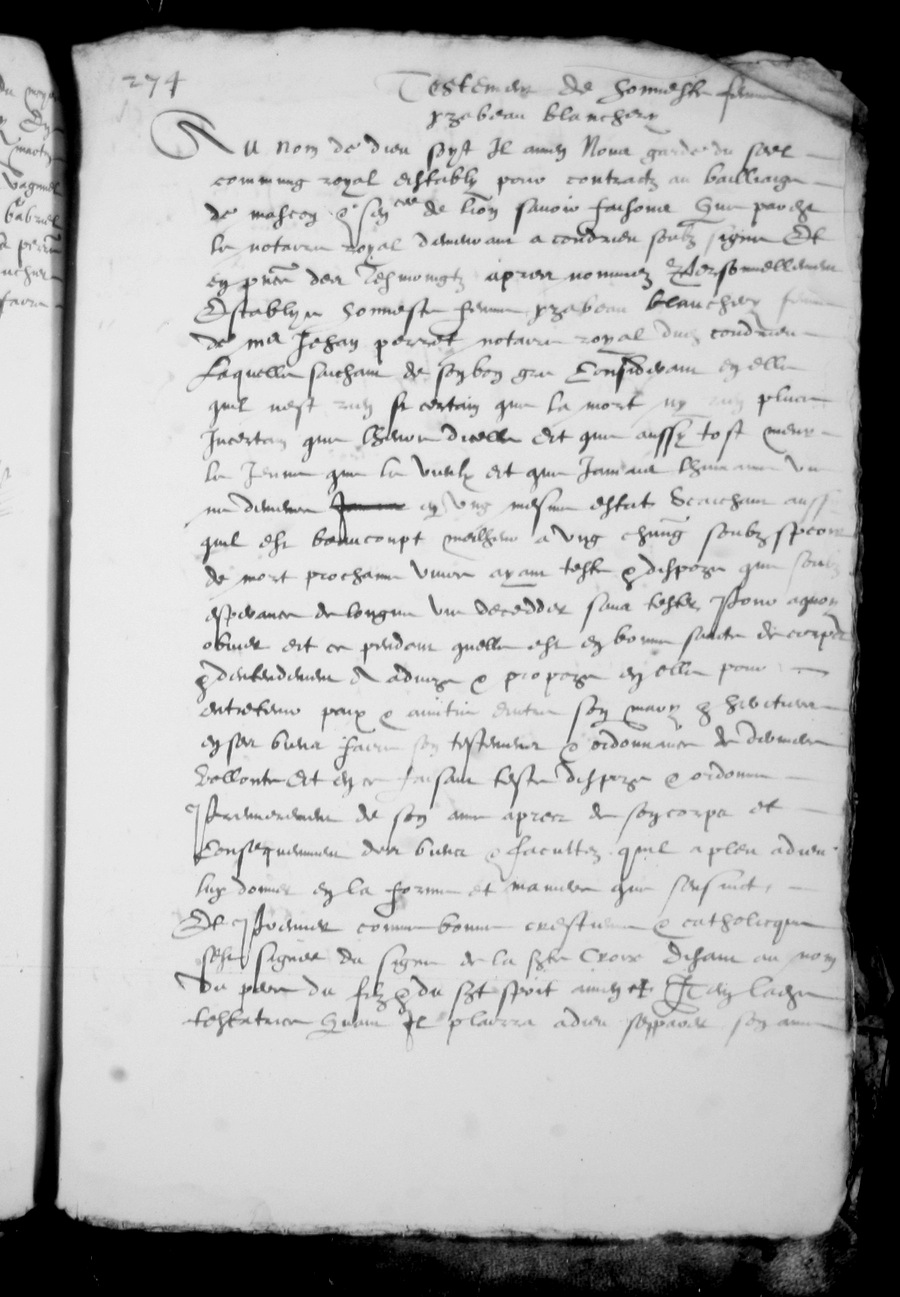 274
Testement de honneste femme
Yzabeau blanchery
Au nom de dieu soyt Il amen Nous garde du seel
commung royal estably pour contractz au bailliaige
de mascon & sen.cee de lion savoir faisons Que par devant
le notaire royal demeurant a condrieu soubz signe Et
en pñce des tesmoingtz apres nommez Personnellement
Establye honneste femme yzabeau blanchery femme
de me Jehan perret notaire royal dud condrieu
Laquelle saichant de son bon gre Considerant en elle
quil nest rien si certain que la mort ny plus
Incertain que lheure dicelle Et que aussy tost meurt
le Jeune que le vieulx et que Jamais
ne demeure en ung mesme estat Scaichant aussy
quil est beaucoupt meilheur a ung chũng soubz
de mort prochaine vivre ayant teste & dispoze que soubz
esperance de longue vie decedder sans tester Pour aquoy
obvier et ce pendant quelle est en bonne sante de corps
& dentendement a advize & propoze en elle pour
entretenir paix & amitie entre son mary &
en ses biens faire son testement & ordonnance de derniere
vollonte Et en ce faisant teste dispoze & ordonne
Premierement de son ame apres de son corps et
Consequemment des biens & facultez quil a pleu a dieu
luy donner en la forme et maniere que sensuict
Et Premier comme bonne crestienne & catholicque
sest signee du signe de la ste Croix disant au nom
du pere du filz & du st sperit amen Et Item ladite
testatrice Quant Il plairra a dieu sepparer son ame